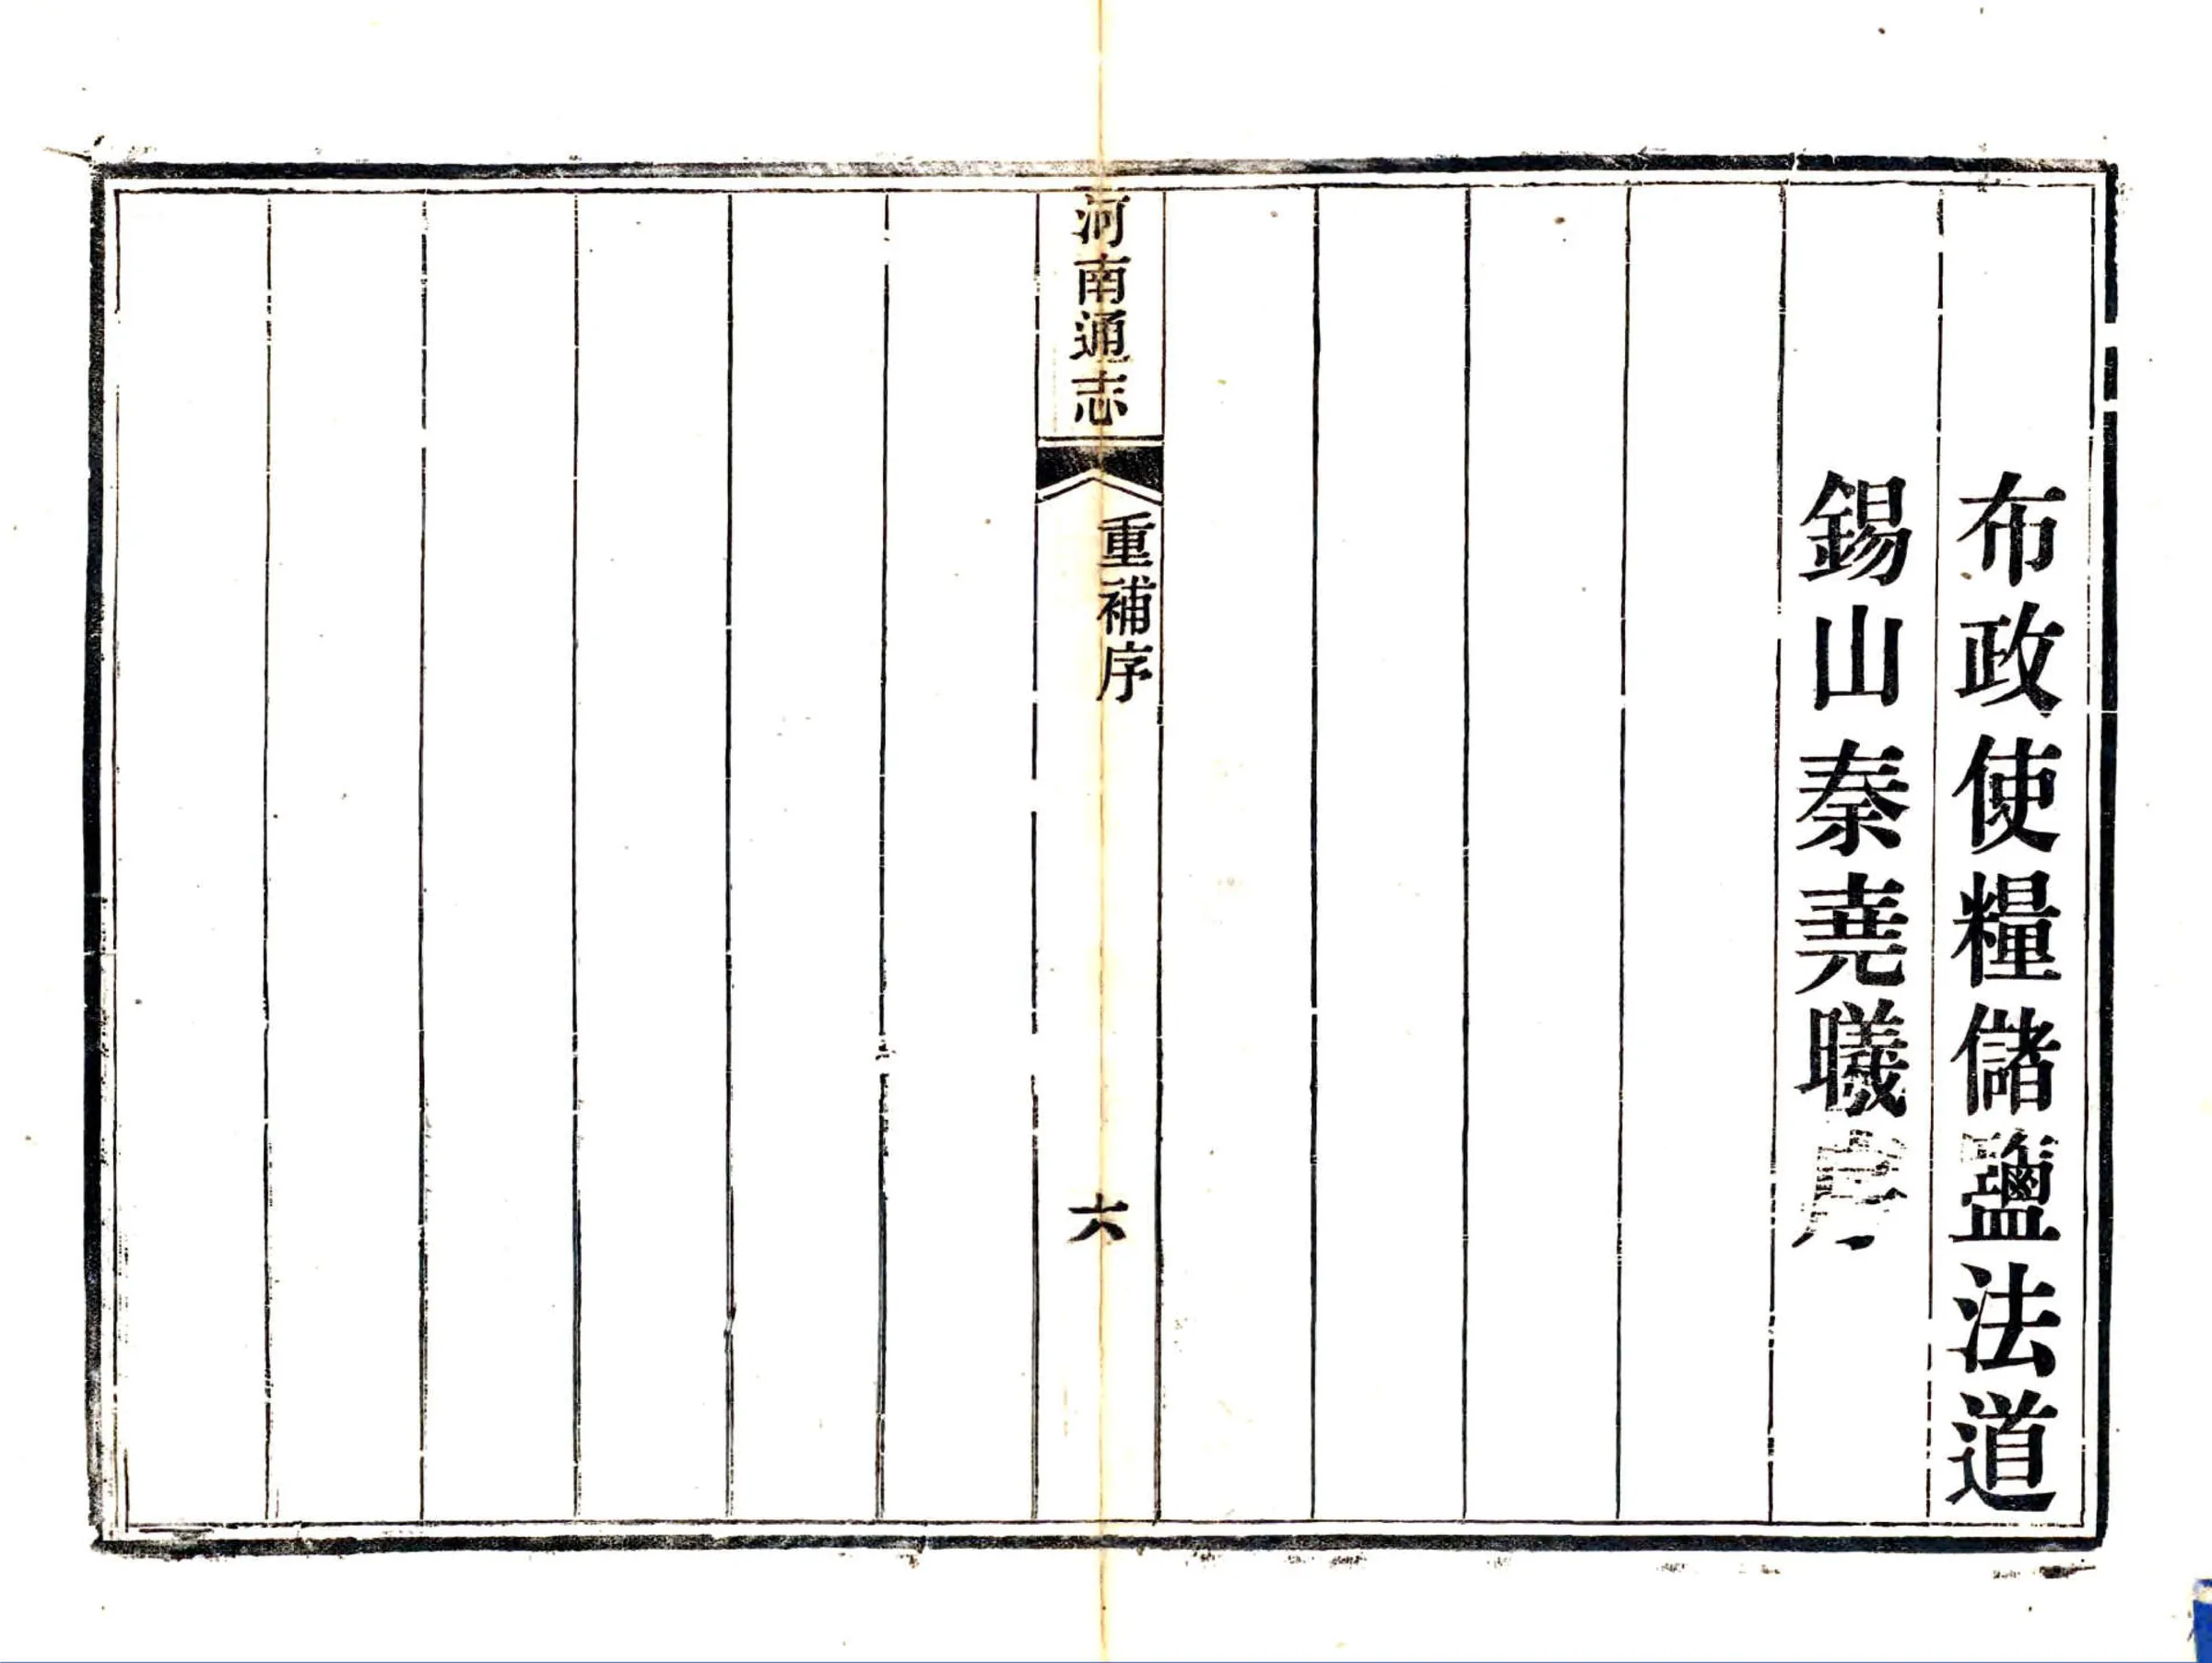 布政使糧儲鹽法道
錫山秦堯曦序
河南通志
重補序
六